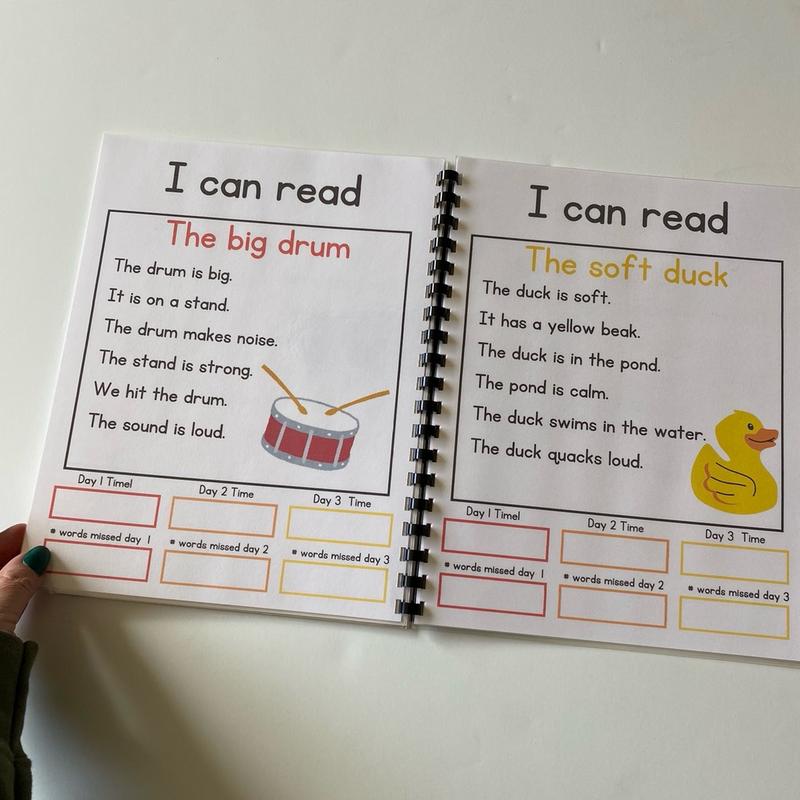 I can read
The big drum
The drum is big.
It is on a stand.
The drum makes noise.
The stand is strong.
We hit the drum.
The sound is loud.
Day 1 Time1
Day 2 Time
Day 3 Time
# words missed day 1
# words missed day 2
# words missed day 3
I can read
The soft duck
The duck is soft.
It has a yellow beak.
The duck is in the pond.
The pond is calm.
The duck swims in the water.
The duck quacks loud.
Day 1 Time1
Day 2 Time
Day 3 Time
# words missed day 1
# words missed day 2
# words missed day 3